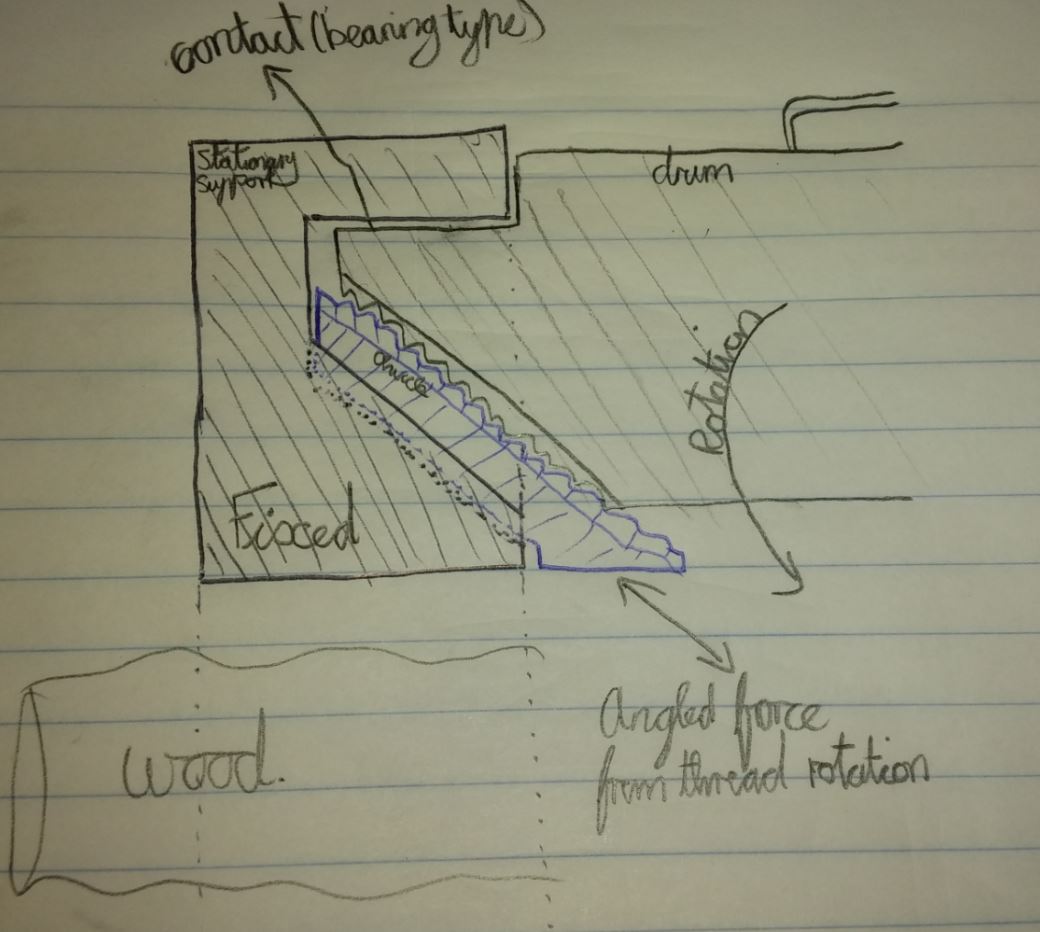 contact (bearing type)
Stationary
support
drum
Rotation
Fixed
Angled force
from thread rotation
wood.